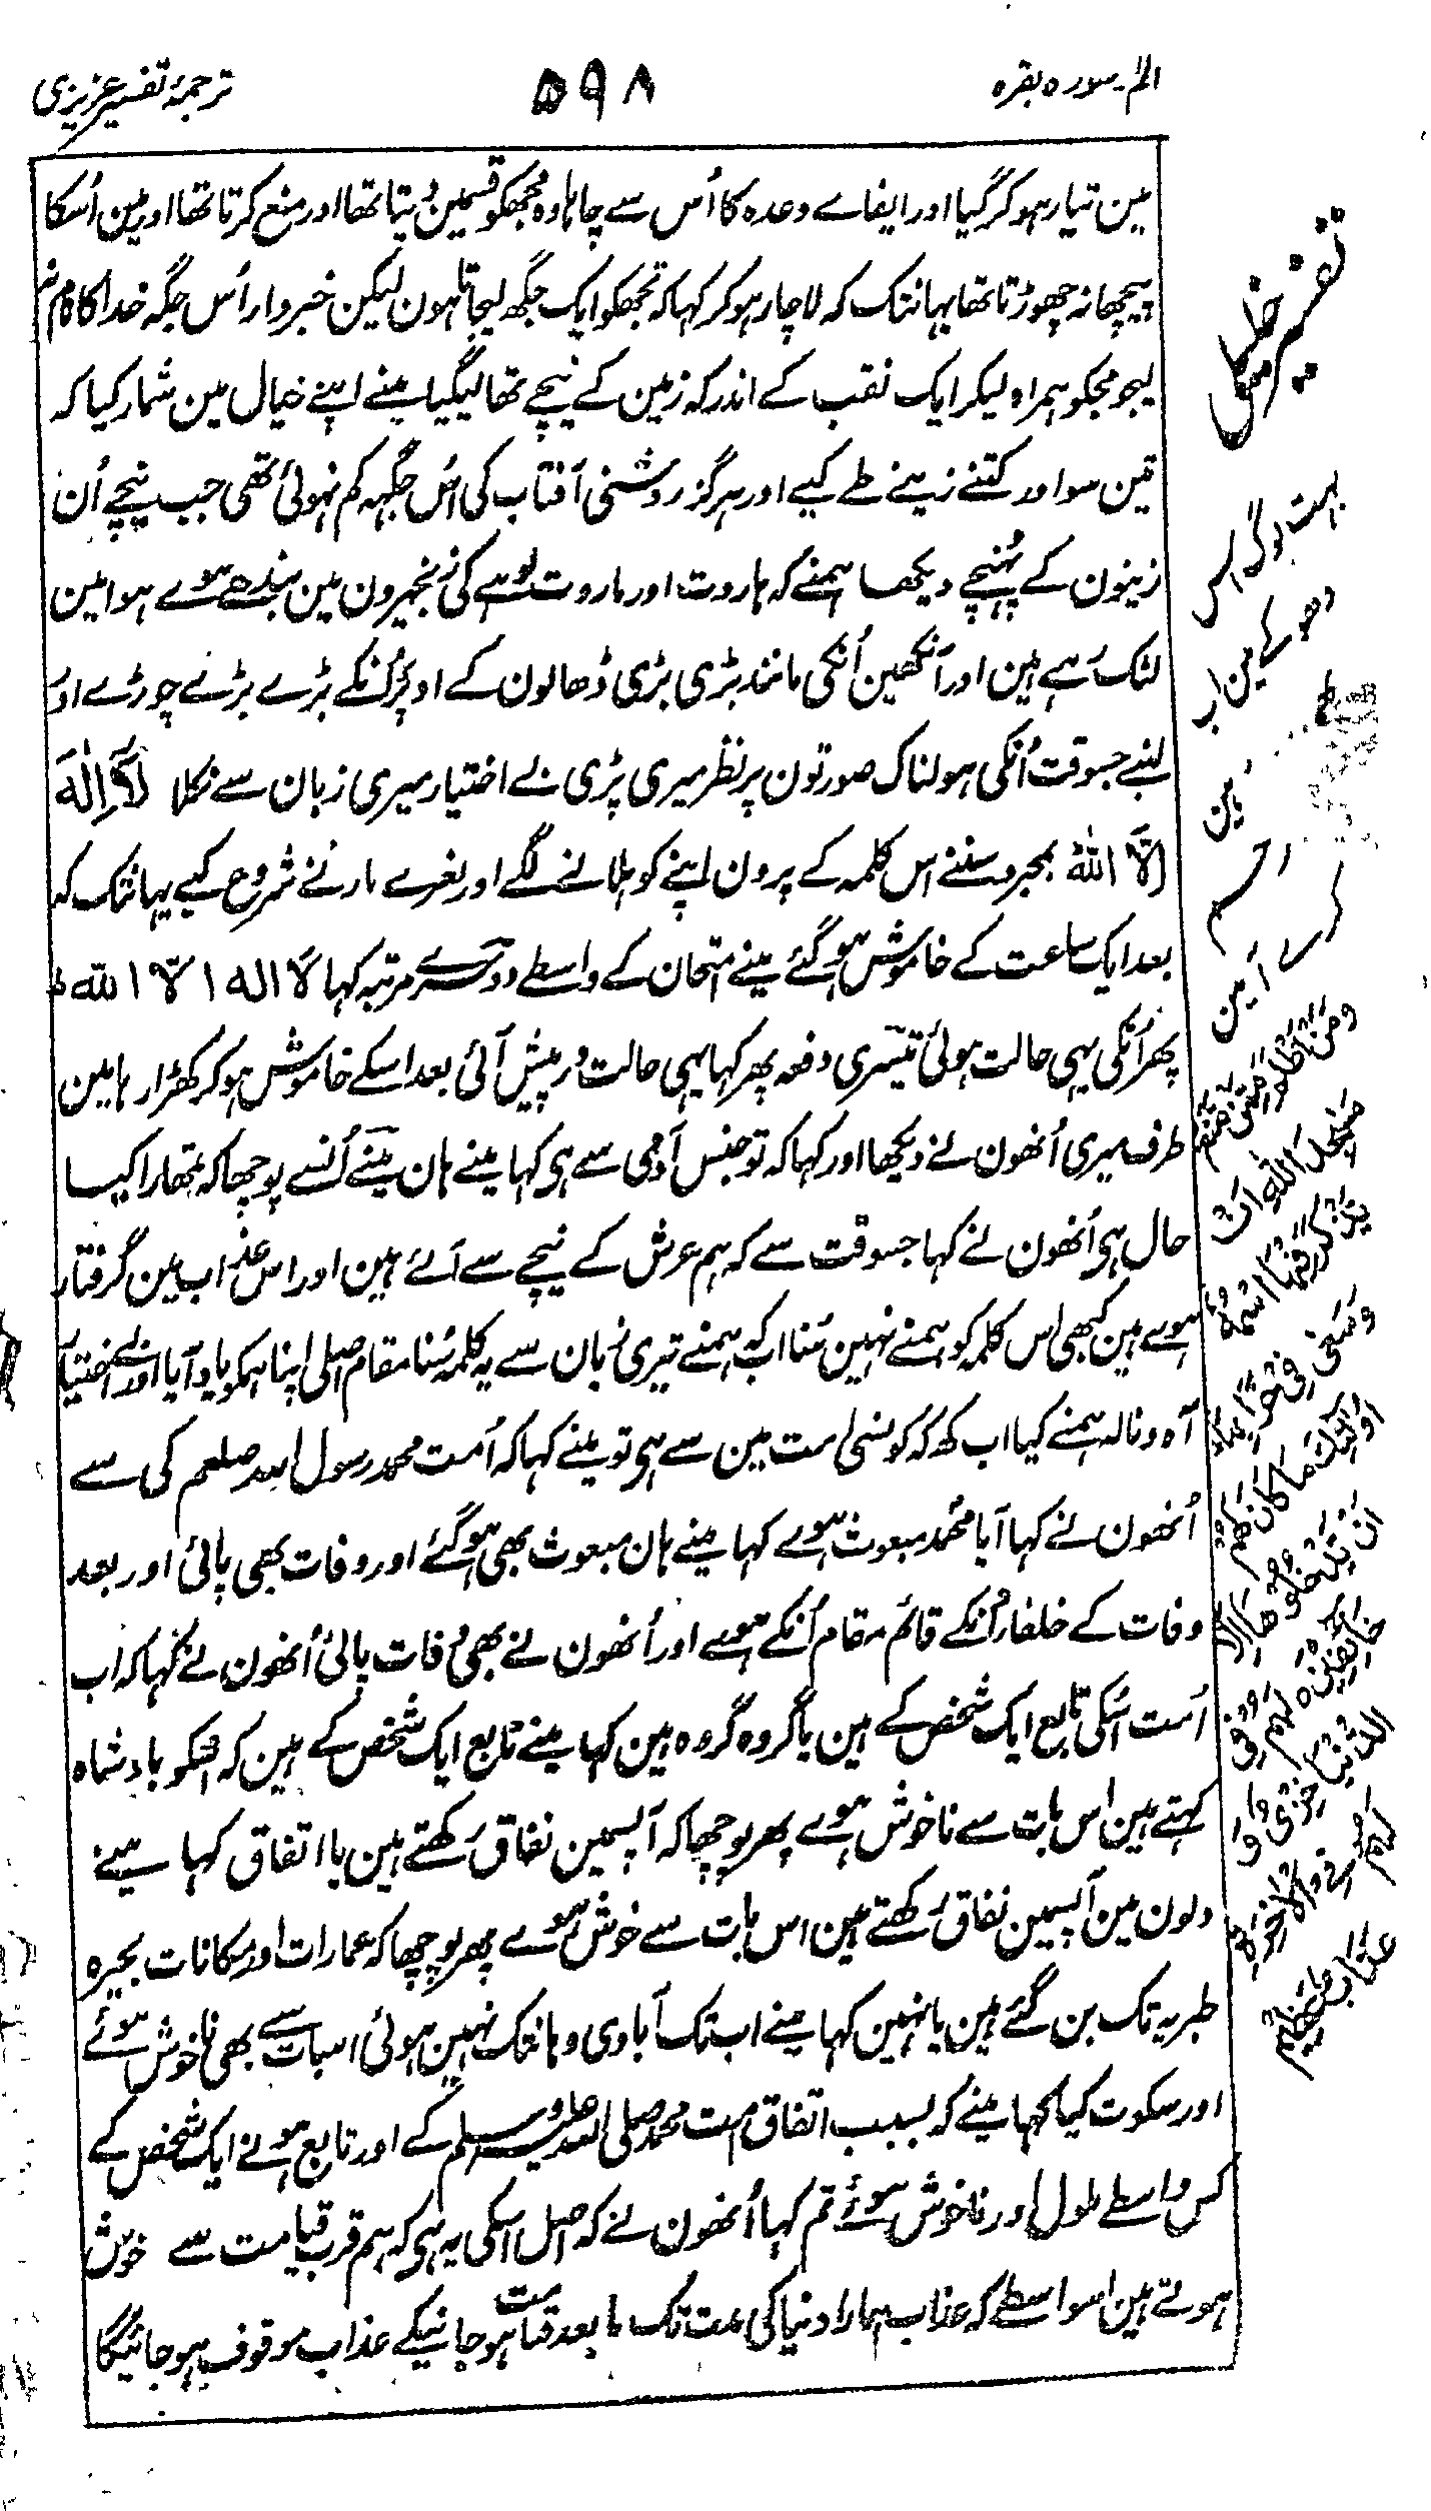 الم۔سورہ بقرہ
۵۹۸
ترجمۂ تفسیر عزیزی
مین تیار ہو کر گیا اور ایفاے وعدہ کا اُس سے چاہا وہ مجھکو قسمین دیتا تھا اور منع کرتا تھا اور مین اُسکا
پیچھا نہ چھوڑتا تھا یہانتک کہ لاچار ہو کر کہا کہ تجھکو ایک جگھ لیجاتا ہون لیکن خبردار اُس جگہ خدا کا نام نہ
لیجو مجکو ہمراہ لیکر ایک نقب کے اندر کہ زمین کے نیچے تھا لیگیا مینے اپنے خیال مین شمار کیا کہ
تین سو اور کتنے زینے طے کیے اور ہرگز روشنی آفتاب کی اُس جگہہ کم نہوئی تھی جب نیچے اُن
زینون کے پہنچے دیکھا ہمنے کہ ہاروت اور ماروت لوہے کی زنجیرون مین بندھے ہوے ہوا مین
لٹک رہے ہین اور آنکھین اُنکی مانند بڑی بڑی ڈھالون کے اور پر اُنکے بڑے بڑے چوڑے اور
لنبے جسوقت اُنکی ہولناک صورتون پر نظر میری پڑی بے اختیار میری زبان سے نکلا لَا اِلٰہَ
اِلَّا اللّٰہُ بمجرد سننے اس کلمہ کے پرون اپنے کو ہلانے لگے اور نعرے مارنے شروع کیے یہانتک کہ
بعد ایک ساعت کے خاموش ہو گئے مینے امتحان کے واسطے دوسرے مرتبہ کہا لا الہ الا اللہ
پھر اُنکی یہی حالت ہوئی تیسری دفعہ پھر کہا یہی حالت درپیش آئی بعد اسکے خاموش ہو کر کھڑا رہا مین
طرف میری اُنھون نے دیکھا اور کہا کہ تو جنس آدمی سے ہی کہا مینے ہان مینے اُنسے پوچھا کہ تمھارا کیسا
حال ہی اُنھون نے کہا جسوقت سے کہ ہم عرش کے نیچے سے آئے ہین اور اس عذاب مین گرفتار
ہوے ہین کبھی اس کلمہ کو ہمنے نہین سُنا اب کہ ہمنے تیری زبان سے یہ کلمہ سُنا مقام اصلی اپنا ہمکو یاد آیا اور بے اختیار
آہ و نالہ ہمنے کیا اب کہ کونسی امت مین سے ہی تو مینے کہا کہ اُمت محمد رسول اللہ صلعم کی سے
اُنھون نے کہا آیا محمد مبعوث ہوے کہا مینے ہان مبعوث بھی ہو گئے اور وفات بھی پائی اور بعد
وفات کے خلفا اُنکے قائم مقام اُنکے ہوے اور اُنھون نے بھی وفات پائی اُنھون نے کہا کہ اب
اُمت اُسکی تابع ایک شخص کے ہین یا گروہ گروہ ہین کہا مینے تابع ایک شخص کے ہین کہ اسکو بادشاہ
کہتے ہین اس بات سے ناخوش ہوے پھر پوچھا کہ آپسمین نفاق رکھتے ہین یا اتفاق کہا مینے
دلون مین آپسمین نفاق رکھتے ہین اس بات سے خوش ہوے پھر پوچھا کہ عمارات اور مکانات بحیرہ
طبریہ تک بن گئے ہین یا نہین کہا مینے اب تک آبادی وہانتک نہین ہوئی اسبات سے بھی ناخوش ہوئے
اور سکوت کیا کہا مینے کہ بسبب اتفاق امت محمد صلی اللہ علیہ وسلم کے اور تابع ہونے ایک شخص کے
کس واسطے ملول اور ناخوش ہوئے تم کہا اُنھون نے کہ اصل اسکی یہ ہی کہ ہم قرب قیامت سے خوش
ہوتے ہین اسواسطے کہ عذاب ہمارا دنیا کی مدت تک ہا بعد قیامت ہو جانیکے عذاب موقوف ہو جائیگا
تفسیر
ومن اظلم ممن منع
مسٰجد اللہ ان
یذکر فیہا اسمہ
وسعی فی خرابہا
اولٰئک ما کان لہم
ان یدخلوھا الا
خائفین ہ لہم فی
الدنیا خزی و
لہم فی الاخرۃ
عذاب عظیم